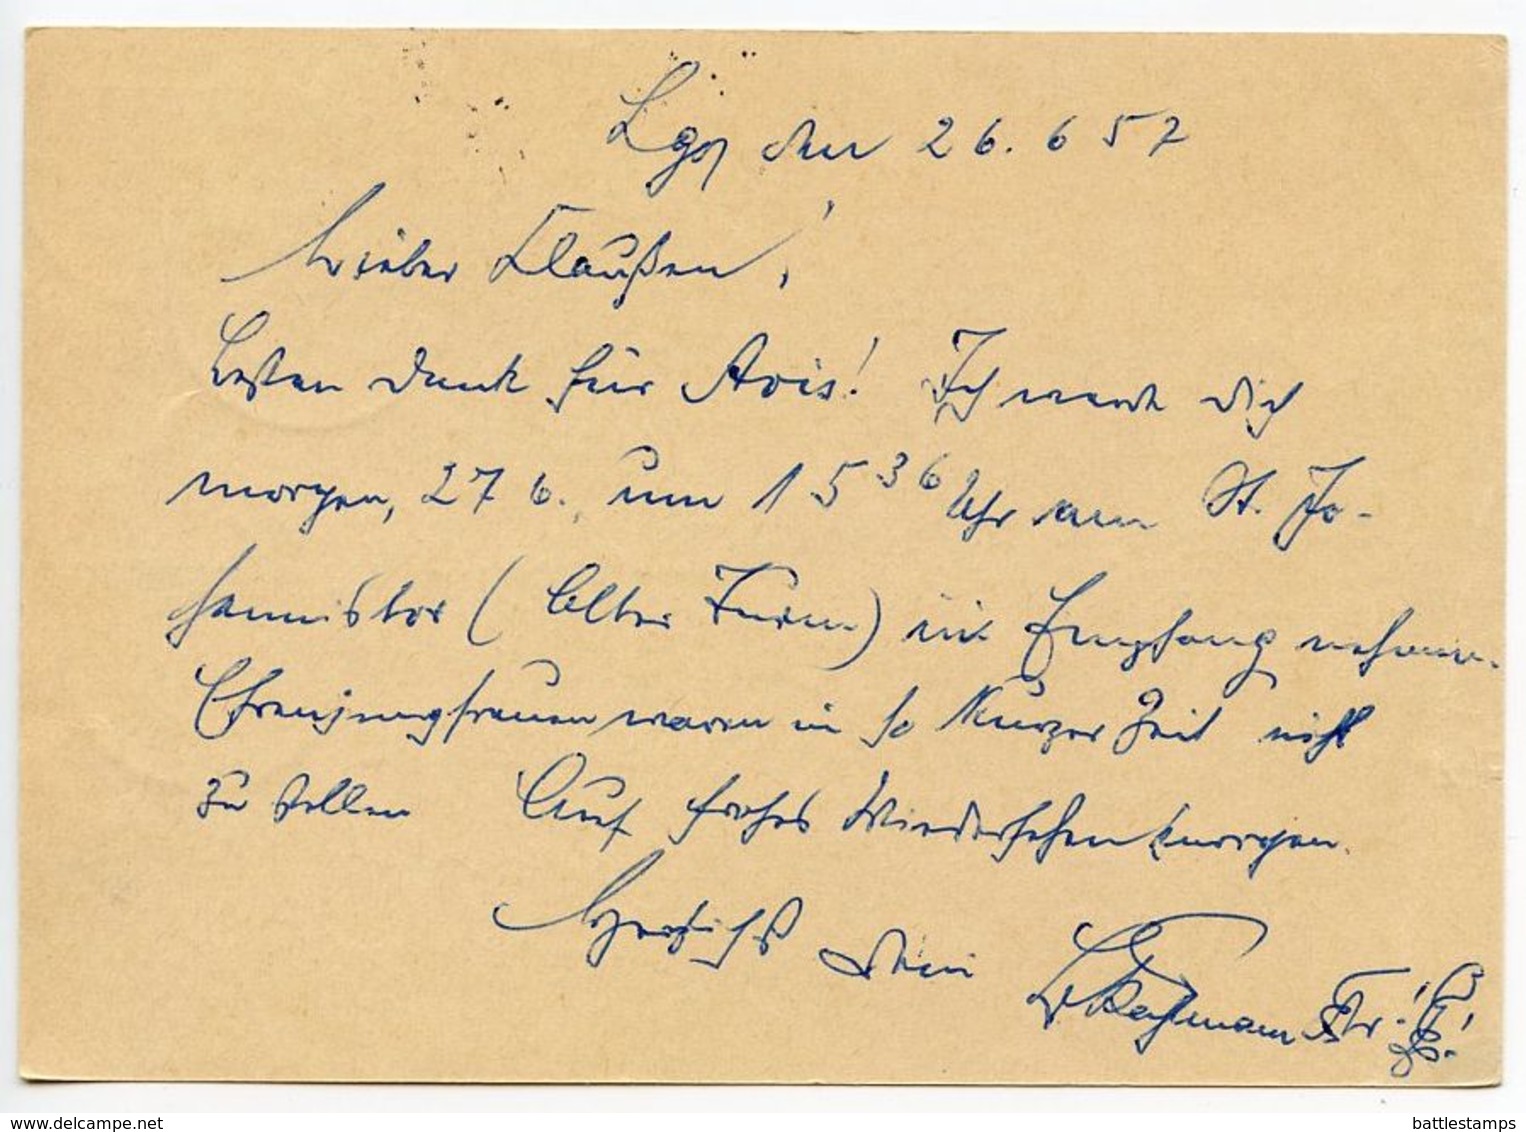 Lgo, den 26. 6 57
Lieber Claußen!
Besten Dank für Avis! Ich werde Dich
morgen, 27 6. um 15 36 Uhr am St. Jo-
hannistor (Alter Turm) in Empfang nehmen.
Ehrenjungfrauen waren in so kurzer Zeit nicht
zu stellen Auf frohes Wiedersehen morgen.
Herzlichst Dein
delcampe.net
battlestamps